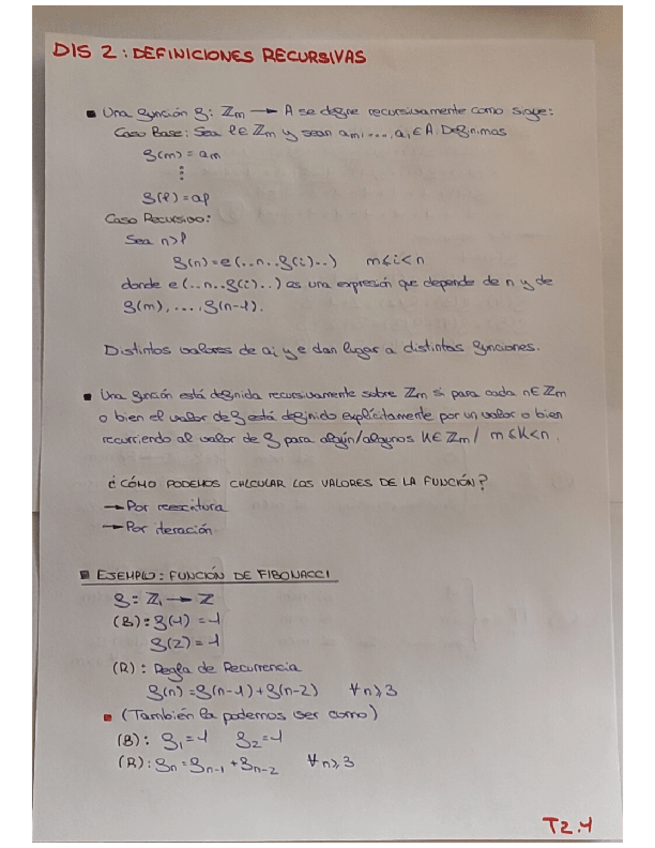 DIS 2: DEFINICIONES RECURSIVAS
▪ Una función f: ℤm → A se define recursivamente como sigue:
Caso Base: Sea l ∈ ℤm y sean am, ..., al ∈ A. Definimos
f(m) = am
⋮
f(l) = al
Caso Recursivo:
Sea n > l
f(n) = e(..n..f(i)..) m ≤ i < n
donde e(..n..f(i)..) es una expresión que depende de n y de
f(m), ..., f(n-1).
Distintos valores de ai y e dan lugar a distintas funciones.
▪ Una función está definida recursivamente sobre ℤm si para cada n ∈ ℤm
o bien el valor de f está definido explícitamente por un valor o bien
recurriendo al valor de f para algún/algunos K ∈ ℤm / m ≤ K < n.
¿CÓMO PODEMOS CALCULAR LOS VALORES DE LA FUNCIÓN?
→ Por reescritura
→ Por iteración
▪ EJEMPLO: FUNCIÓN DE FIBONACCI
f: ℤ1 → ℤ
(B): f(1) = 1
f(2) = 1
(R): Regla de Recurrencia
f(n) = f(n-1) + f(n-2) ∀n ≥ 3
▪ (También la podemos ver como)
(B): f1 = 1 f2 = 1
(R): fn = fn-1 + fn-2 ∀n ≥ 3
T2.1